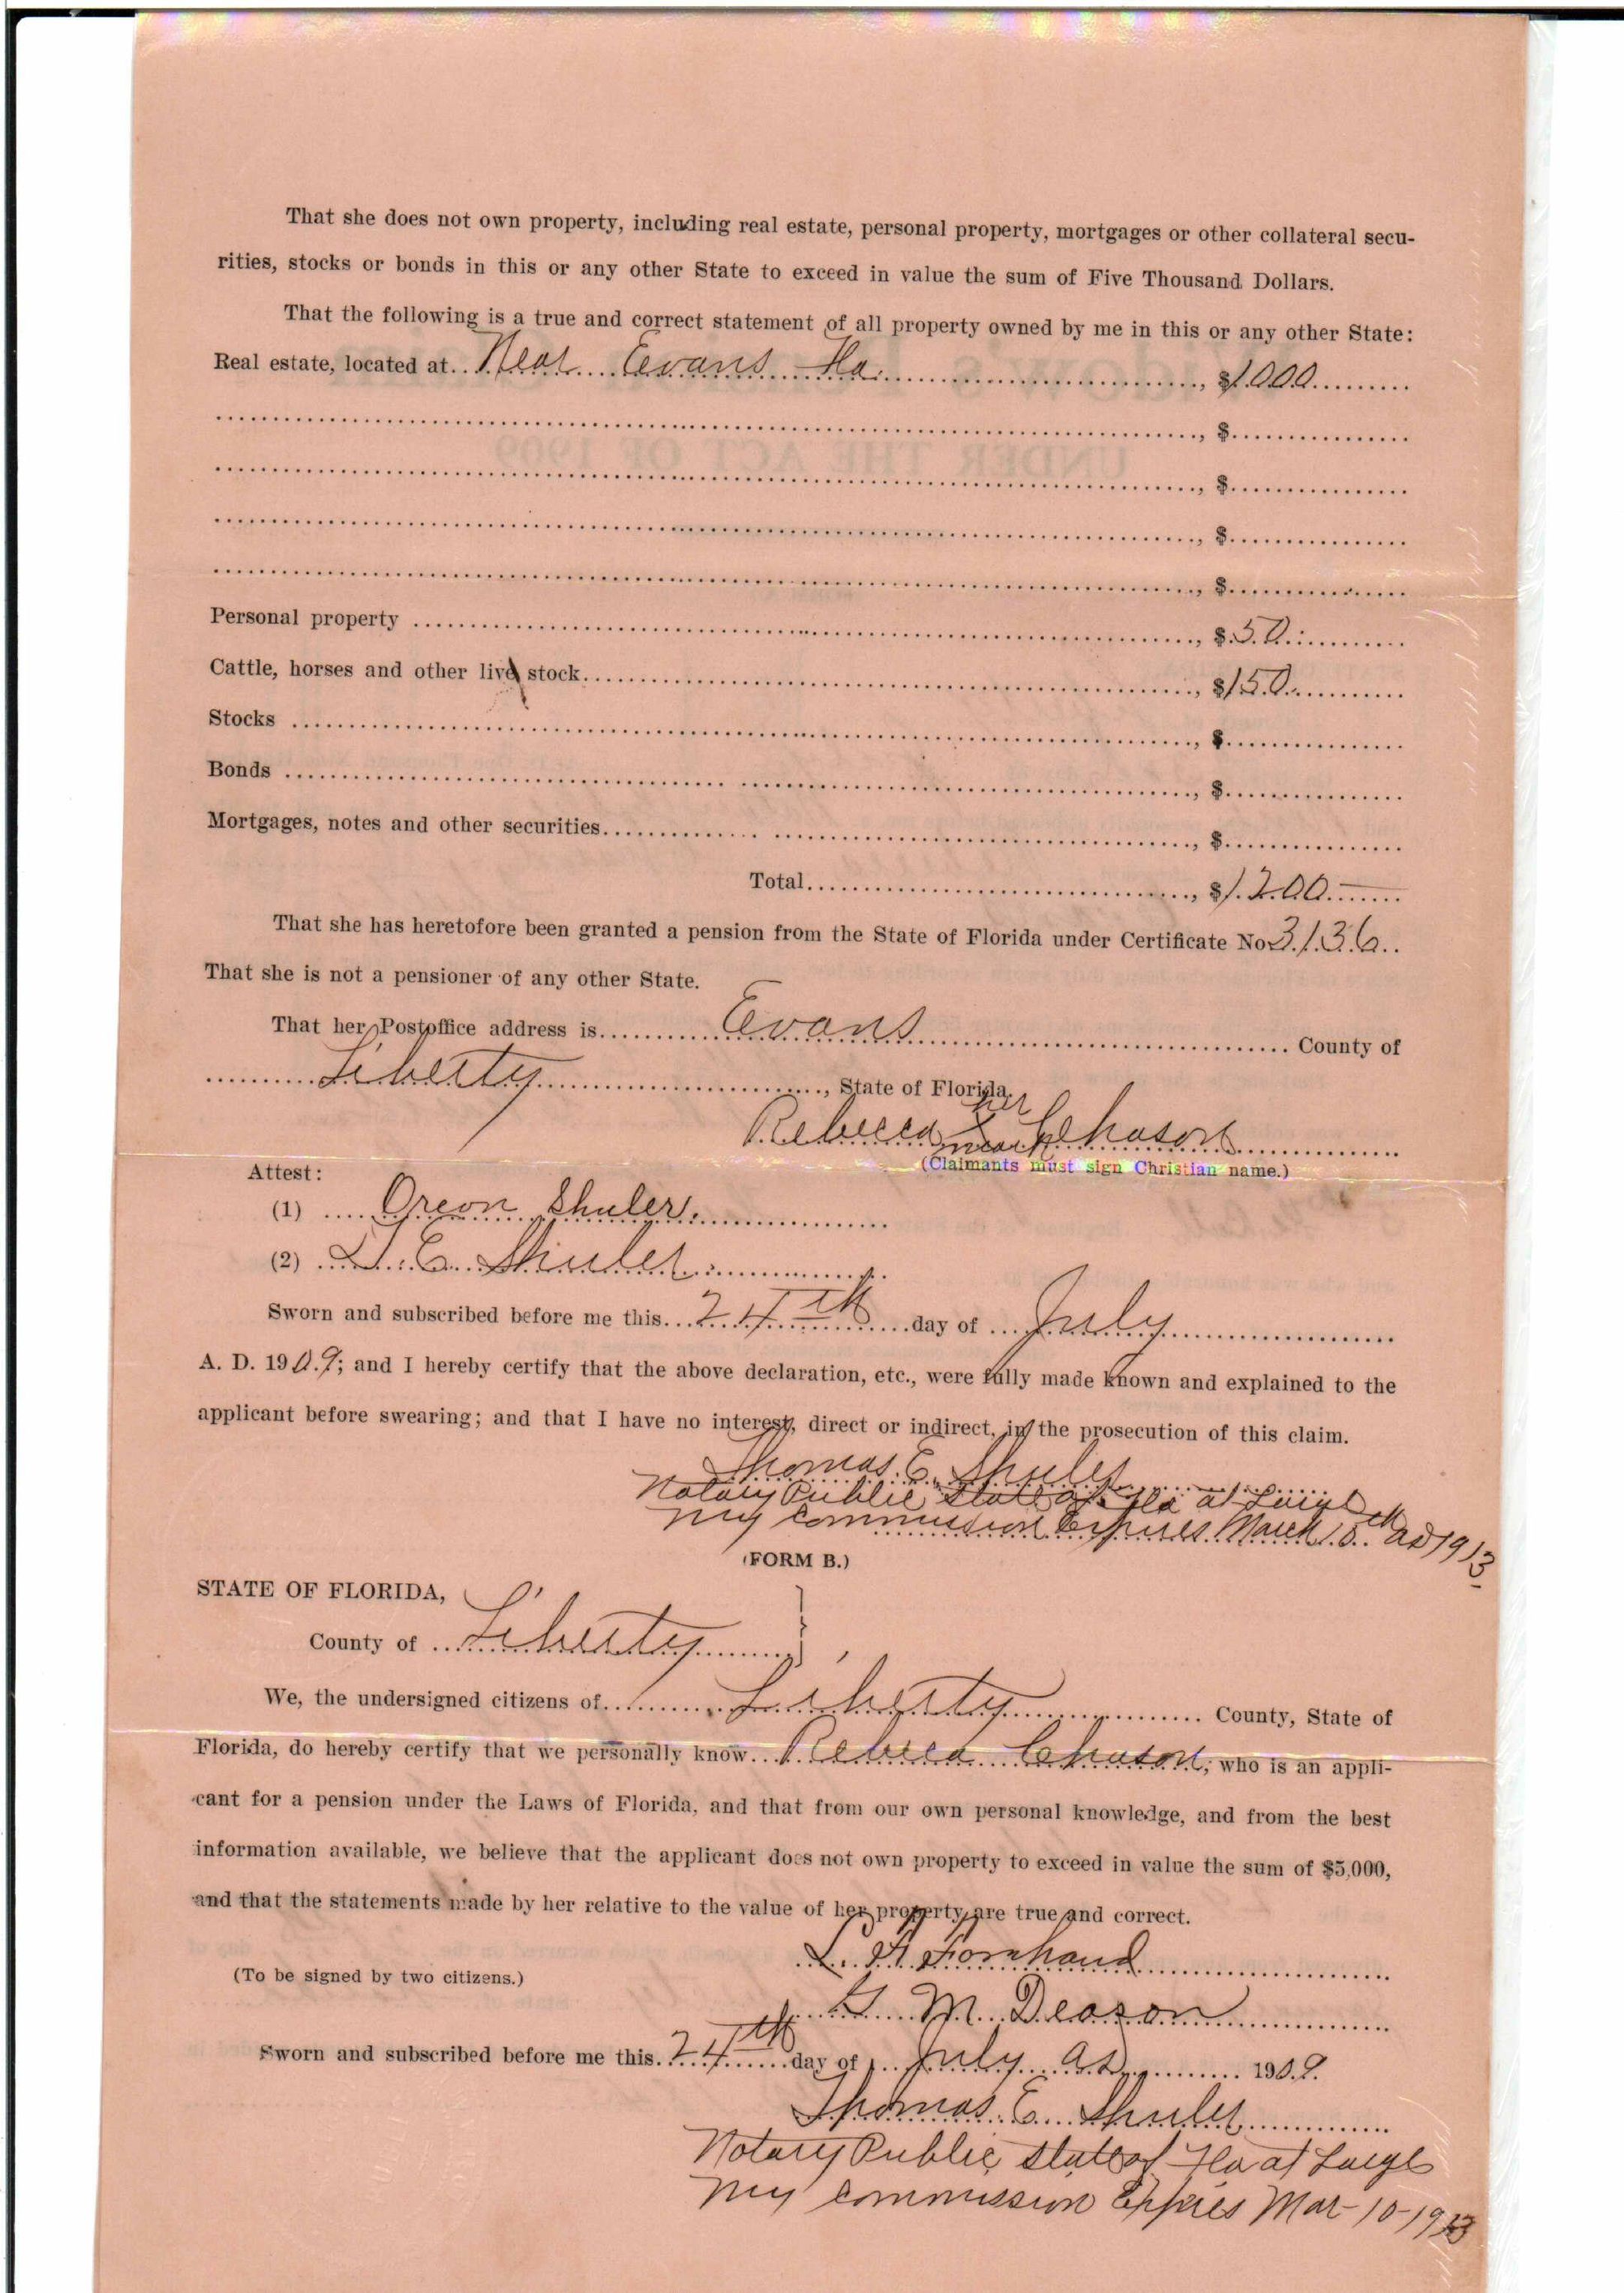 That she does not own property, including real estate, personal property, mortgages or other collateral secu-
rities, stocks or bonds in this or any other State to exceed in value the sum of Five Thousand Dollars.
That the following is a true and correct statement of all property owned by me in this or any other State:
Real estate, located at Near Evans Fla. , $1000
, $
, $
, $
, $
Personal property , $ 50
Cattle, horses and other live stock , $150
Stocks , $
Bonds , $
Mortgages, notes and other securities , $
Total , $1200
That she has heretofore been granted a pension from the State of Florida under Certificate No 3136
That she is not a pensioner of any other State.
That her Postoffice address is Evans County of
Liberty , State of Florida.
her
Rebecca X Chason
mark
(Claimants must sign Christian name.)
Attest:
(1) Oreon Shuler.
(2) T. E. Shuler
Sworn and subscribed before me this 24th day of July
A. D. 1909; and I hereby certify that the above declaration, etc., were fully made known and explained to the
applicant before swearing; and that I have no interest, direct or indirect, in the prosecution of this claim.
Thomas E. Shuler
Notary Public State of Fla at Large
My commission Expires March 10th AD 1913
(FORM B.)
STATE OF FLORIDA,
County of Liberty
We, the undersigned citizens of Liberty County, State of
Florida, do hereby certify that we personally know Rebeca Chason, who is an appli-
cant for a pension under the Laws of Florida, and that from our own personal knowledge, and from the best
information available, we believe that the applicant does not own property to exceed in value the sum of $5,000,
and that the statements made by her relative to the value of her property are true and correct.
L. H. Fornhand
(To be signed by two citizens.)
G. M. Deason
Sworn and subscribed before me this 24th day of July AD 1909.
Thomas E. Shuler
Notary Public State of Fla at Large
My commission Expires Mar-10-1913